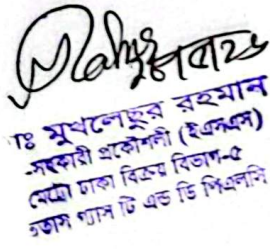 মোঃ মুখলেছুর রহমান
সহকারী প্রকৌশলী (ইএসএস)
মেট্রো ঢাকা বিক্রয় বিভাগ-৫
তিতাস গ্যাস টি এন্ড ডি পিএলসি